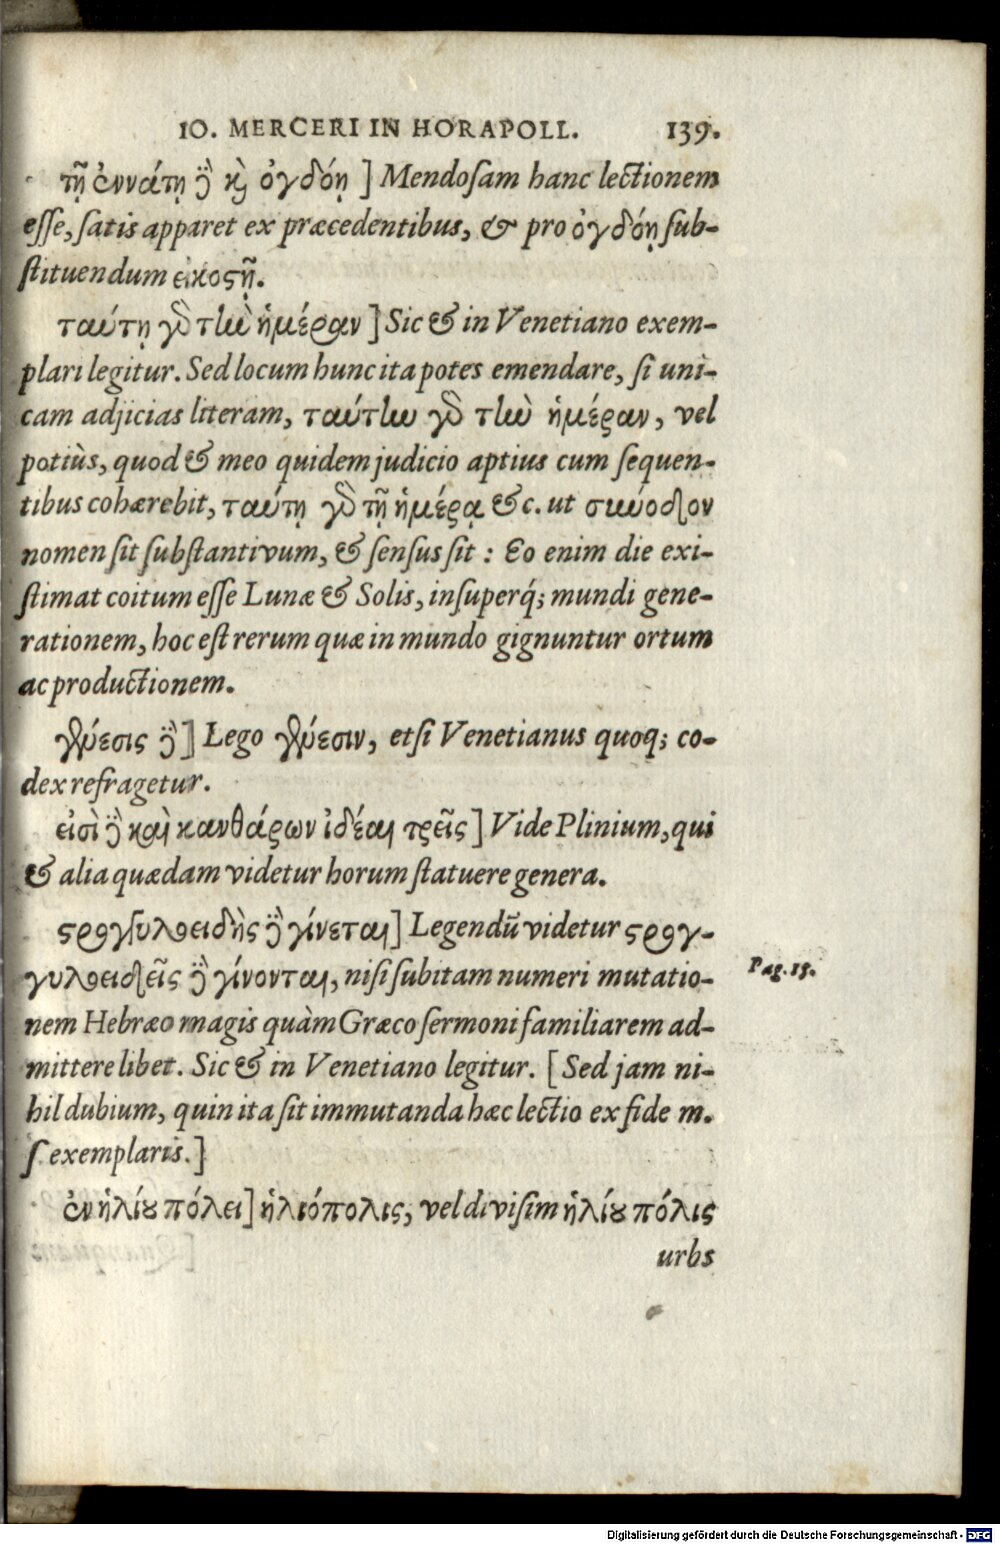 IO. MERCERI IN HORAPOLL. 139.
τῇ ἐννάτῃ δὲ καὶ ὀγδόῃ ] Mendosam hanc lectionem
esse, satis apparet ex præcedentibus, & pro ὀγδόῃ sub-
stituendum εἰκοςῇ.
ταύτῃ γὰρ τὴν ἡμέραν ] Sic & in Venetiano exem-
plari legitur. Sed locum hunc ita potes emendare, si uni-
cam adjicias literam, ταύτην γὰρ τὴν ἡμέραν, vel
potiùs, quod & meo quidem judicio aptius cum sequen-
tibus cohærebit, ταύτῃ γὰρ τῇ ἡμέρᾳ &c. ut σύνοδον
nomen sit substantivum, & sensus sit : Eo enim die exi-
stimat coitum esse Lunæ & Solis, insuperq; mundi gene-
rationem, hoc est rerum quæ in mundo gignuntur ortum
ac productionem.
γένεσις δὲ ] Lego γένεσιν, etsi Venetianus quoq; co-
dex refragetur.
εἰσὶ δὲ καὶ κανθάρων ἰδέαι τρεῖς ] Vide Plinium, qui
& alia quædam videtur horum statuere genera.
ςρογγυλοειδὴς δὲ γίνεται ] Legendũ videtur ςρογ-
γυλοειδεῖς δὲ γίνονται, nisi subitam numeri mutatio-
Pag. 15.
nem Hebræo magis quàm Græco sermoni familiarem ad-
mittere libet. Sic & in Venetiano legitur. [ Sed jam ni-
hil dubium, quin ita sit immutanda hæc lectio ex fide m.
s exemplaris. ]
ἐν ἡλίου πόλει ] ἡλιόπολις, vel divisim ἡλίου πόλις
urbs
Digitalisierung gefördert durch die Deutsche Forschungsgemeinschaft - DFG